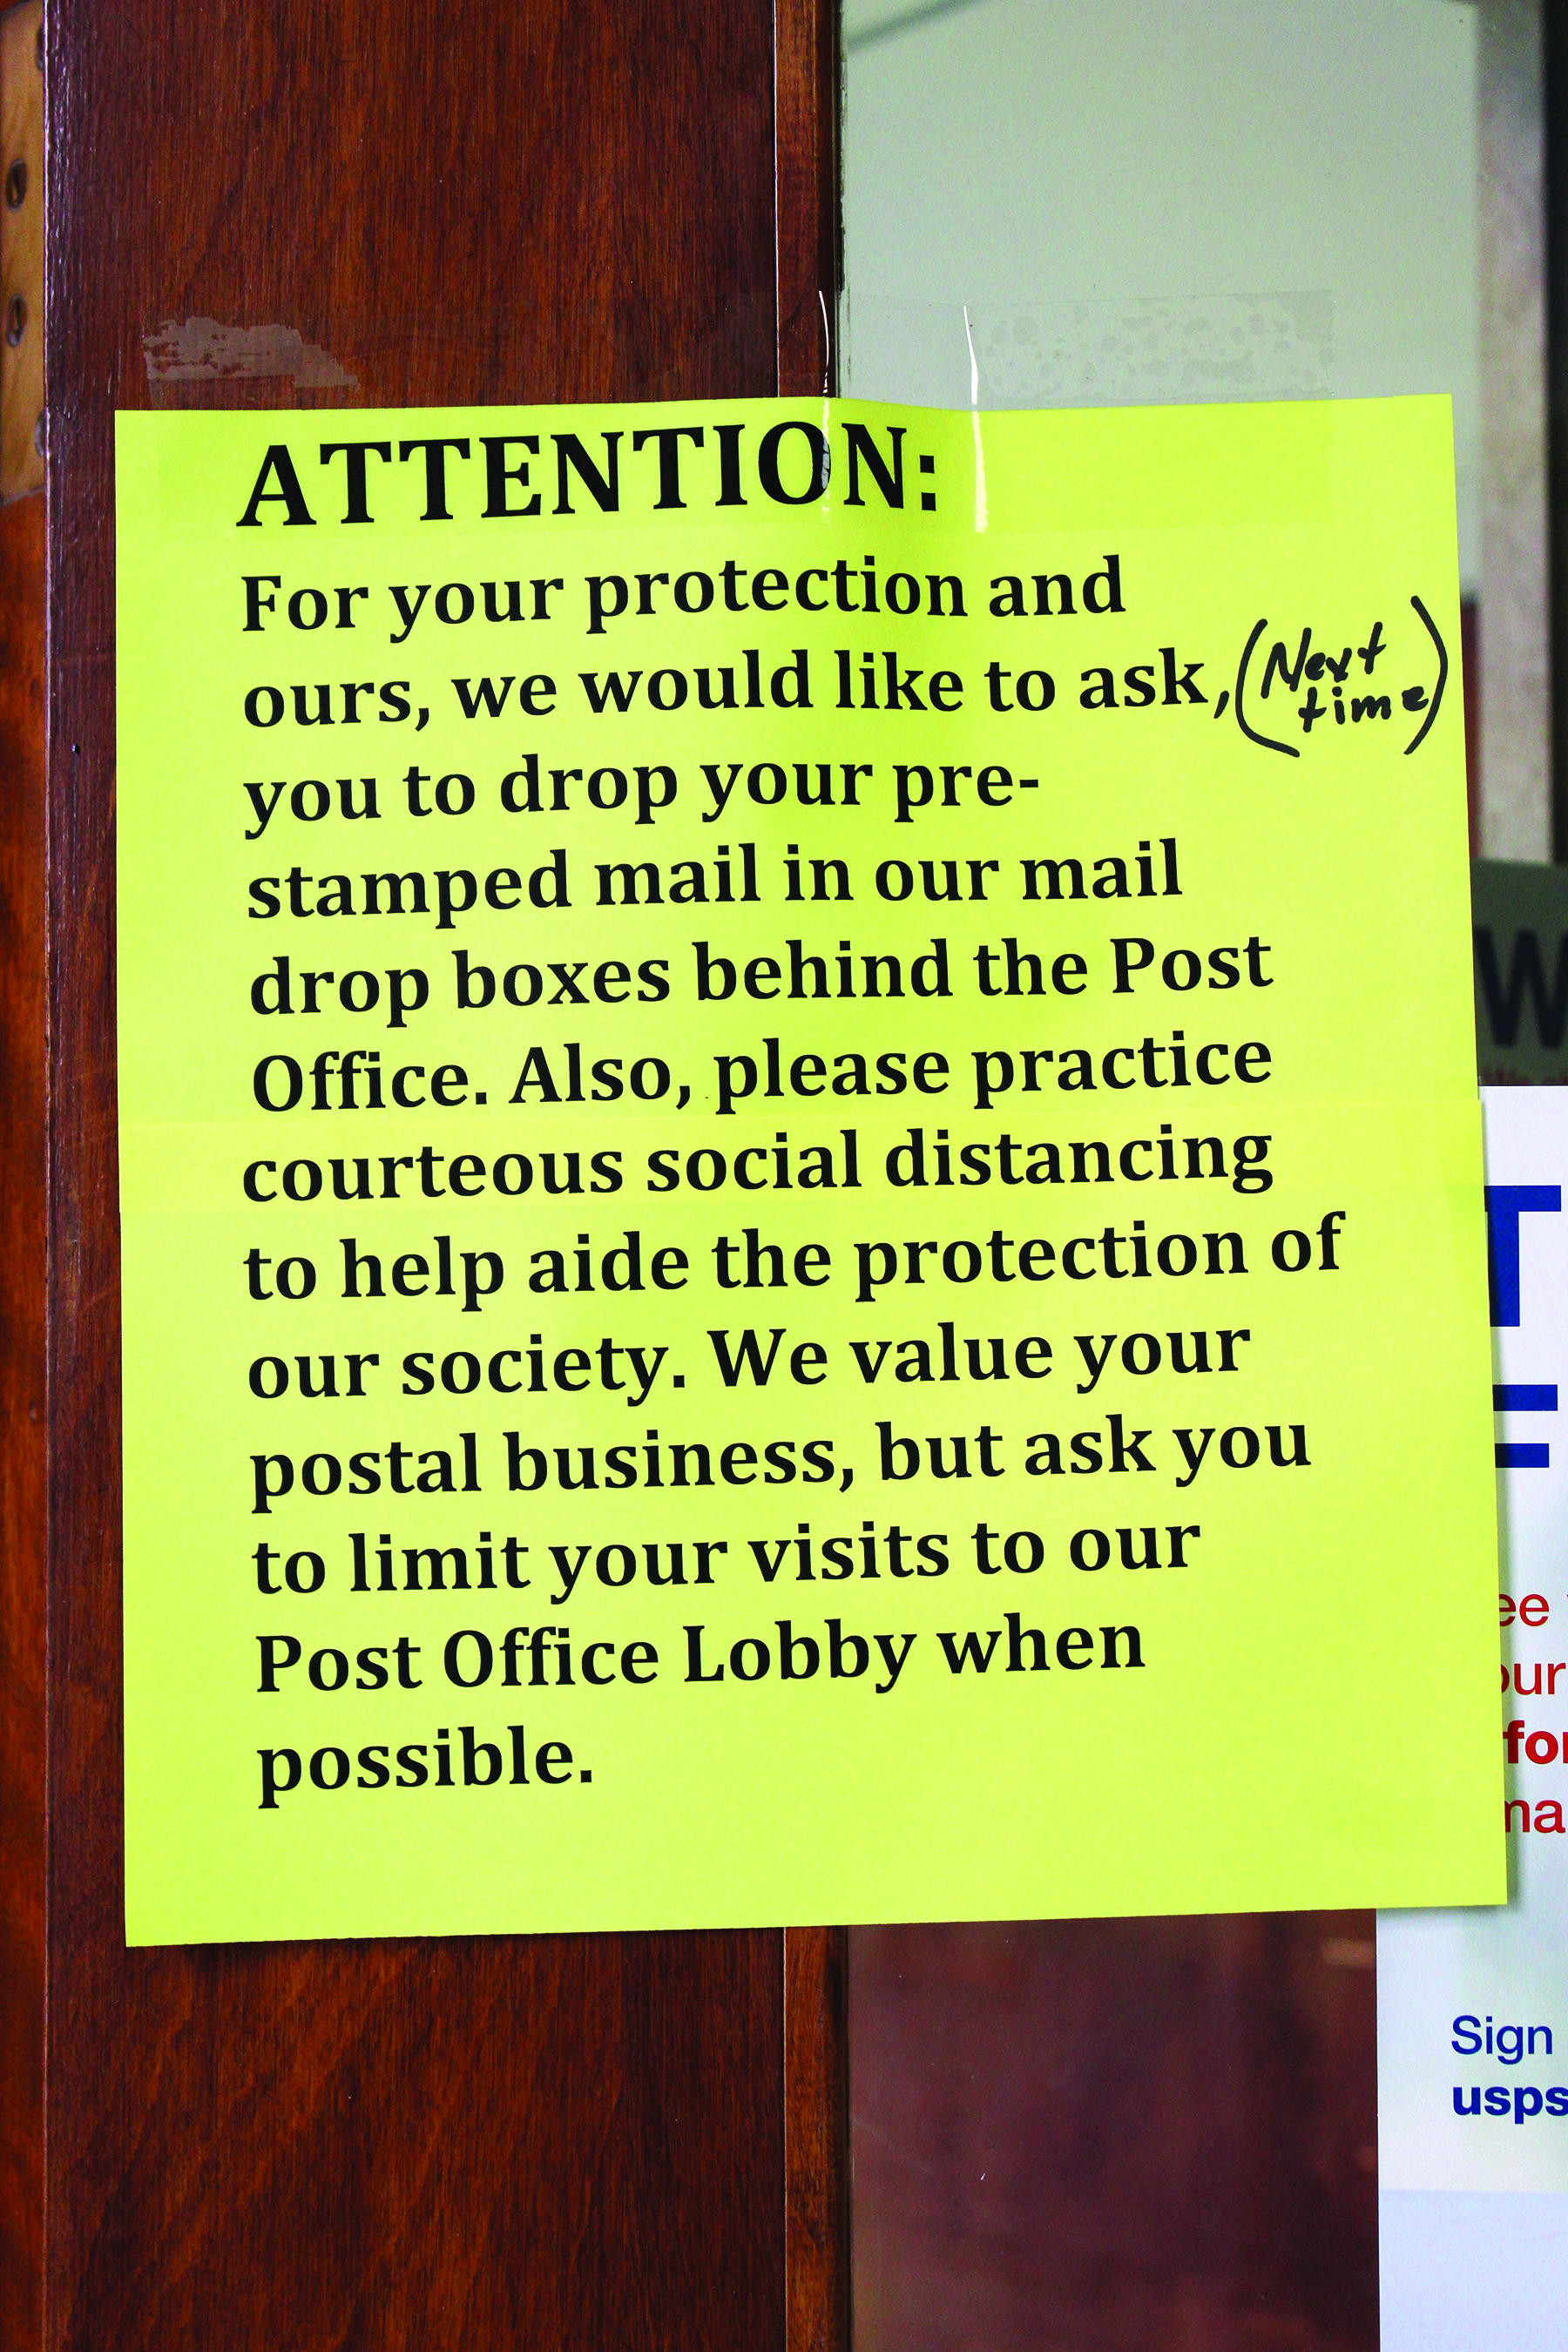 ATTENTION:
For your protection and
ours, we would like to ask, (Next
time)
you to drop your pre-
stamped mail in our mail
drop boxes behind the Post
Office. Also, please practice
courteous social distancing
to help aide the protection of
our society. We value your
postal business, but ask you
to limit your visits to our
Post Office Lobby when
possible.
Sign
usps